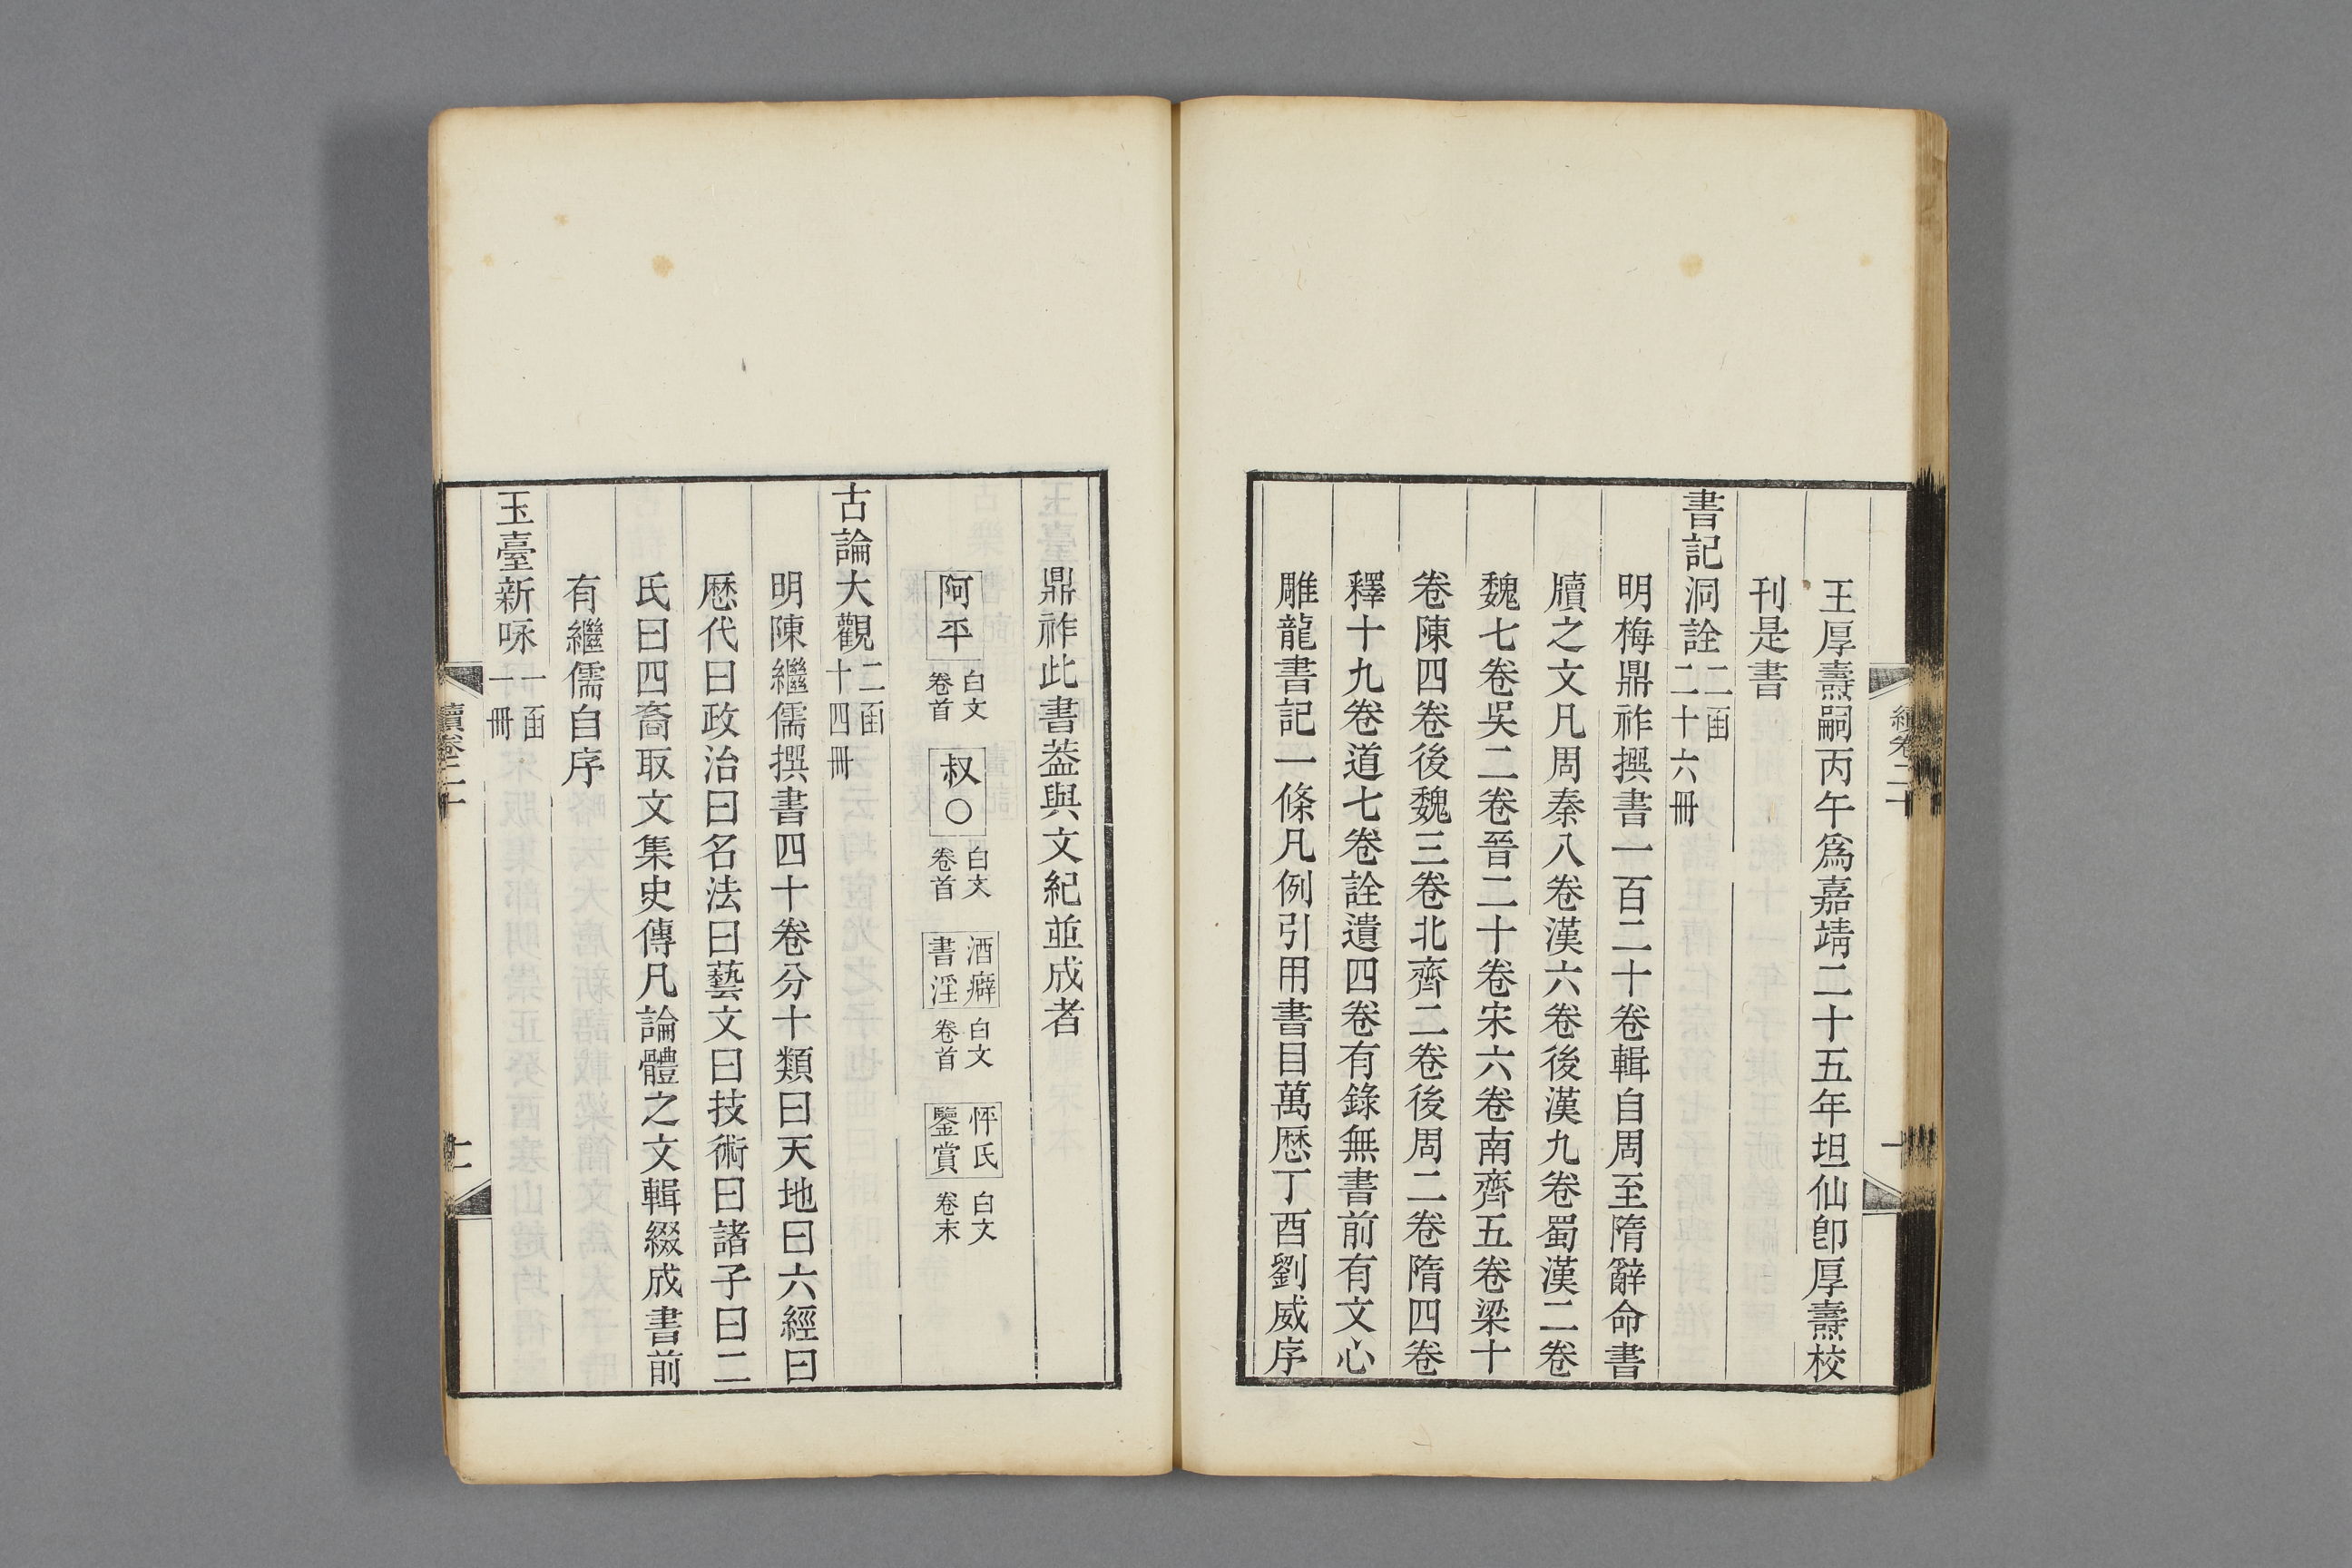 王厚燾嗣丙午爲嘉靖二十五年坦仙卽厚燾校
刊是書
書記洞詮二函二十六冊
明梅鼎祚撰書一百二十卷輯自周至隋辭命書
牘之文凡周秦八卷漢六卷後漢九卷蜀漢二卷
魏七卷吳二卷晉二十卷宋六卷南齊五卷梁十
卷陳四卷後魏三卷北齊二卷後周二卷隋四卷
釋十九卷道七卷詮遺四卷有錄無書前有文心
雕龍書記一條凡例引用書目萬厯丁酉劉威序
鼎祚此書葢與文紀並成者
阿平 白文卷首 叔〇 白文卷首 酒癖書淫 白文卷首 怦氏鑒賞 白文卷末
古論大觀二函十四冊
明陳繼儒撰書四十卷分十類曰天地曰六經曰
厯代曰政治曰名法曰藝文曰技術曰諸子曰二
氏曰四裔取文集史傳凡論體之文輯綴成書前
有繼儒自序
玉臺新咏一函一冊
續卷二十